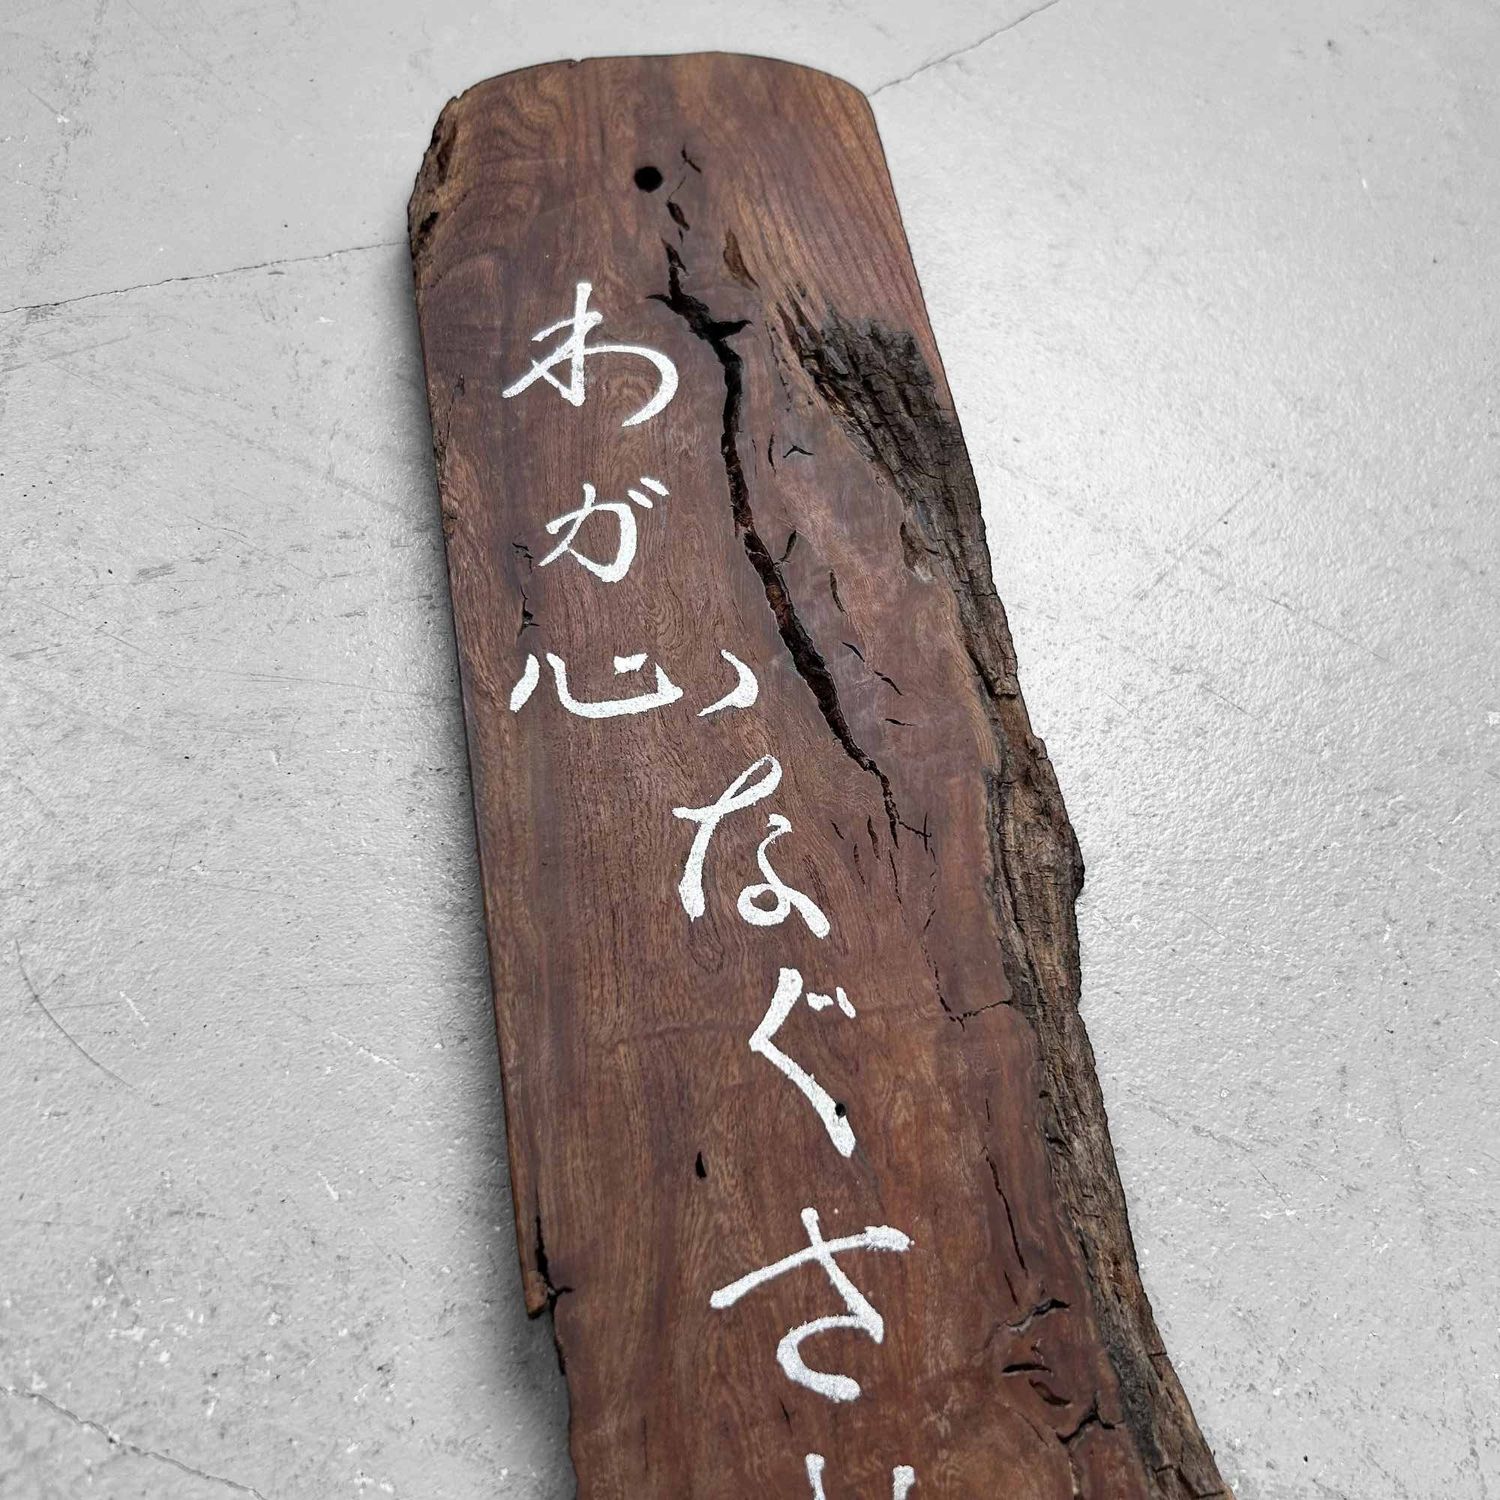 わが心なぐさ